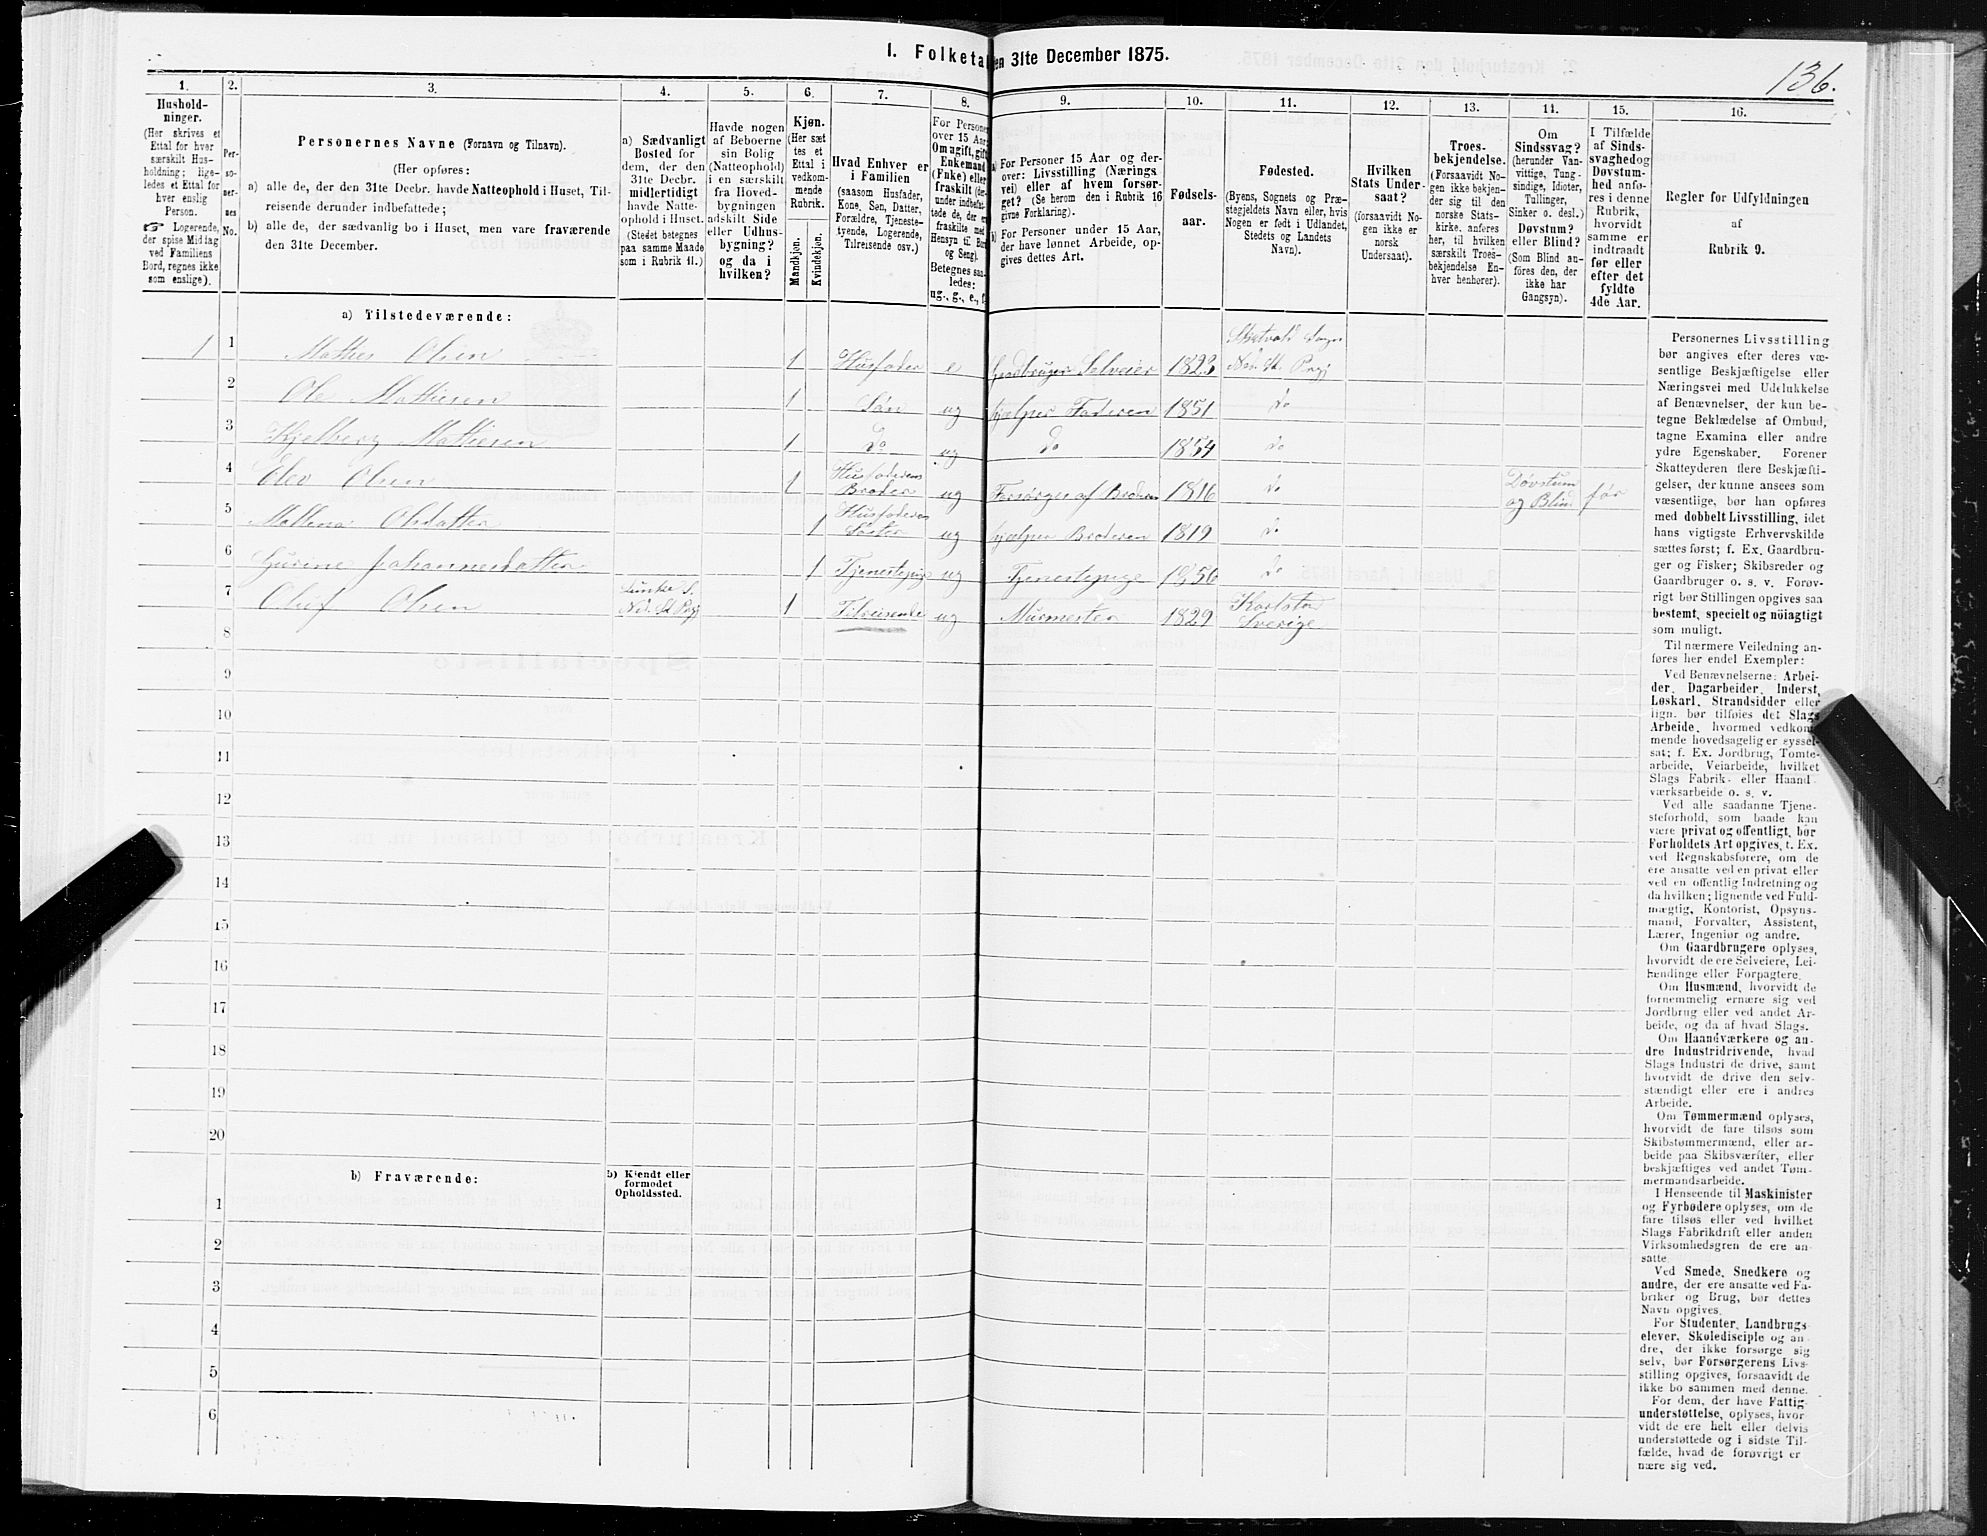 I. Folketal den 31te December 1875.
136.
1.
Hushold-
ninger.
(Her skrives et
Ettal for hver
særskilt Hus-
holdning; lige-
ledes et Ettal for
hver enslig
Person.
☞ Logerende,
der spise Middag
ved Familiens
Bord, regnes ikke
som enslige).
2.
Per-
so-
ner-
nes
No.
3.
Personernes Navne (Fornavn og Tilnavn).
(Her opføres:
a) alle de, der den 31te Decbr. havde Natteophold i Huset, Til-
reisende derunder indbefattede;
b) alle de, der sædvanlig bo i Huset, men vare fraværende
den 31te December.
4.
a) Sædvanligt
Bosted for
dem, der den
31te Decbr.
midlertidigt
havde Natte-
ophold i Huset.
(Stedet betegnes
paa samme Maade
som i Rubrik 11.)
5.
Havde nogen
af Beboerne
sin Bolig
(Natteophold)
i en særskilt
fra Hoved-
bygningen
adskilt Side
eller Udhus-
bygning?
og da i
hvilken?
6.
Kjøn.
(Her sæt
tes et
Ettal i
vedkom-
mende
Rubrik.
Mandkjøn.
Kvindekjøn.
7.
Hvad Enhver er
i Familien
(saasom Husfader,
Kone, Søn, Datter,
Forældre, Tjeneste-
tyende, Logerende,
Tilreisende osv.)
8.
For Personer
over 15 Aar:
Om ugift, gift,
Enkemand
(Enke) eller
fraskilt
Hensyn til Bord
og Seng).
Betegnes saa-
ledes:
ug., g., e., f.
9.
a) For Personer 15 Aar og der-
over: Livsstilling (Nærings
vei) eller af hvem forsør-
get? (Se herom den i Rubrik 16
givne Forklaring).
b) For Personer under 15 Aar,
der have lønnet Arbeide, op-
gives dettes Art.
10.
Fødsels-
aar.
11.
Fødested.
(Byens, Sognets og Præ-
stegjeldets Navn eller, hvis
Nogen er født i Udlandet,
Stedets og Landets
Navn).
12.
Hvilken
Stats Under-
saat?
(forsaavidt No-
gen ikke er
norsk
Undersaat).
13.
Troes-
bekjendelse.
(Forsaavidt No-
gen ikke bekjen-
der sig til den
norske Stats-
kirke, anføres
her, til hvilken
særskilt Troes-
bekjendelse En-
hver henhører).
14.
Om
Sindssvag?
(herunder Van-
vittige, Tung-
sindige, Idioter,
Tullinger,
Sinker o. desl.)
Døvstum?
eller Blind?
(Som Blind an-
føres den, der
ikke har
Gangsyn).
15.
I Tilfælde
af Sinds-
svaghed og
Døvstum-
hed anfø-
res i denne
Rubrik,
hvorvidt
samme er
indtraadt
før eller
efter det
fyldte
4de Aar.
16.
Regler for Udfyldningen
af
Rubrik 9.
a) Tilstedeværende:
1 1 Mathis Olsen 1 Husfader e Gaardbruger Selveier 1823 Skatvald Sogn Ned. St. Prgj
2 Ole Mathisen 1 Søn ug hjælper Faderen 1851 do
3 Kjelberg Mathisen 1 do ug do 1854 do
4 Elev Olsen 1 Husfaderens Broder ug Forsørges af Broderen 1816 do Døvstum og Blind før
5 Mallena Olsdatter 1 Husfaderens Søster ug hjælper Broderen 1819 do
6 Gurine Johannesdatter 1 Tjenestepige ug Tjenestepige 1856 do
7 Oluf Olsen Ned. St. Prgj 1 Tilreisende ug Murmester 1829 Karlstad Sverige
8
9
10
11
12
13
14
15
16
17
18
19
20
b) Fraværende:
b) Kjendt eller
formodet
Opholdssted.
1
2
3
4
5
6
Personernes Livsstilling
bør angives efter deres væ-
sentlige Beskjæftigelse eller
Næringsvei med Udelukkelse
af Benævnelser, der kun be-
tegne Beklædelse af Ombud,
tagne Examina eller andre
ydre Egenskaber. Forener
Skatteyderen flere Beskjæfti-
gelser, der kunne ansees som
væsentlige, bør han opføres
med dobbelt Livsstilling, idet
hans vigtigste Erhvervskilde
sættes først; f. Ex. Gaardbru-
ger og Fisker; Skibsreder og
Gaardbruger o. s. v. Forøv-
rigt bør Stillingen opgives saa
bestemt, specielt og nöiagtigt
som muligt.
Til nærmere Veiledning an-
føres her endel Exempler:
Ved Benævnelserne: Arbei-
der, Dagarbeider, Inderst,
Løskarl, Strandsidder eller
lign. bør tilføies det Slags
Arbeide, hvormed vedkom-
mende hovedsagelig er syssel-
sat; f. Ex. Jordbrug, Tomte-
arbeide, Veiarbeide, hvilket
Slags Fabrik- eller Haand-
værksarbeide o. s. v.
Ved alle saadanne Tjene-
steforhold, som baade kan
være privat og offentligt, bør
Forholdets Art opgives, t. Ex.
ved Regnskabsførere, om de
ere ansatte ved en privat eller
ved en offentlig Indretning og
da hvilken; lignende ved Fuld-
mægtig, Kontorist, Opsyns-
mand, Forvalter, Assistent,
Lærer, Ingeniør og andre.
Om Gaardbrugere oplyses,
hvorvidt de ere Selveiere, Lei-
lændinge eller Forpagtere.
Om Husmænd, hvorvidt de
fornemmelig ernære sig ved
Jordbrug eller ved andet Ar-
beide, og da af hvad Slags.
Om Haandværkere og an-
dre Industridrivende, hvad
Slags Industri de drive, samt
hvorvidt de drive den selv-
stændigt eller ere i andres
Arbeide.
Om Tømmermænd oplyses,
hvorvidt de fare tilsøs som
Skibstømmermænd, eller ar-
beide paa Skibsværfter, eller
beskjæftiges ved andet Tøm-
mermandsarbeide.
I Henseende til Maskinister
og Fyrbødere oplyses, om de
fare tilsøs eller ved hvilket
Slags Fabrikdrift eller anden
Virksomhedsgren de ere an-
satte.
Ved Smede, Snedkere og
andre, der ere ansatte ved Fa-
briker og Brug, bør dettes
Navn opgives.
For Studenter, Landbrugs-
elever, Skoledisciple og an-
dre, der ikke forsørge sig
selv, bør Forsørgerens Livs-
stilling opgives, forsaavidt de
ikke bo sammen med denne.
For dem, der have Fattig-
understøttelse, oplyses, hvor-
vidt de ere helt eller delvis
understøttede og i sidste Til-
fælde, hvad de forøvrigt er-
nære sig ved.